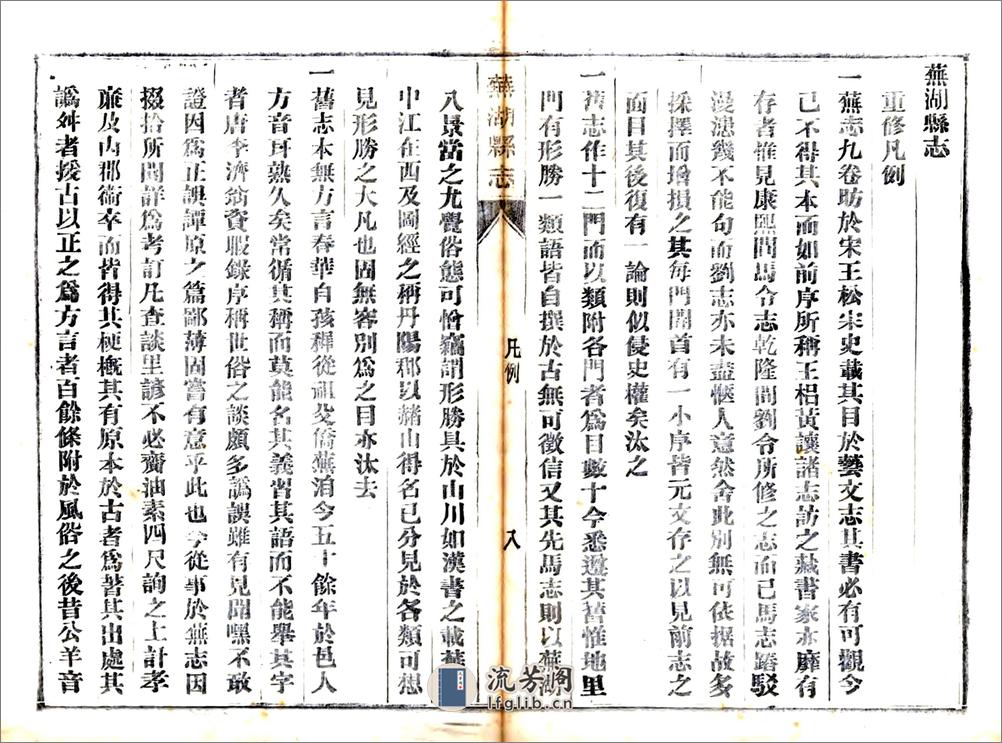 蕪湖縣志
重修凡例
一蕪志九卷昉於宋王松宋史載其目於藝文志其書必有可觀今
已不得其本而如前序所稱王梠黃讓諸志訪之藏書家亦靡有
存者惟見康熙間馬令志乾隆間劉令所修之志而已馬志踳駁
漫漶幾不能句而劉志亦未盡愜人意然舍此別無可依据故多
採擇而增損之其每門間首有一小序皆元文存之以見前志之
面目其後復有一論則似侵史權矣汰之
一舊志作十二門而以類附各門者爲目數十今悉遵其舊惟地里
門有形勝一類語皆自撰於古無可徵信又其先馬志則以蕪湖
蕪湖縣志
凡例
八
八景當之尤覺俗態可憎竊謂形勝具於山川如漢書之載蕪
中江在西及圖經之稱丹陽郡以赭山得名已分見於各類可想
見形勝之大凡也固無容別爲之目亦汰去
一舊志本無方言春華自孩穉從祖父僑蕪洎今五十餘年於邑人
方音耳熟久矣常循其稱而莫能名其義習其語而不能舉其字
者唐李濟翁資暇錄序稱世俗之談頗多譌誤雖有見聞嘿不敢
證因爲正誤譚原之篇鄙薄固嘗有意乎此也今從事於蕪志因
掇拾所聞詳爲考訂凡查談里諺不必齎油素四尺詢之上計孝
廉及內郡衛卒而皆得其梗概其有原本於古者爲著其出處其
譌舛者援古以正之爲方言者百餘條附於風俗之後昔公羊音
流芳閣
lfglib.cn